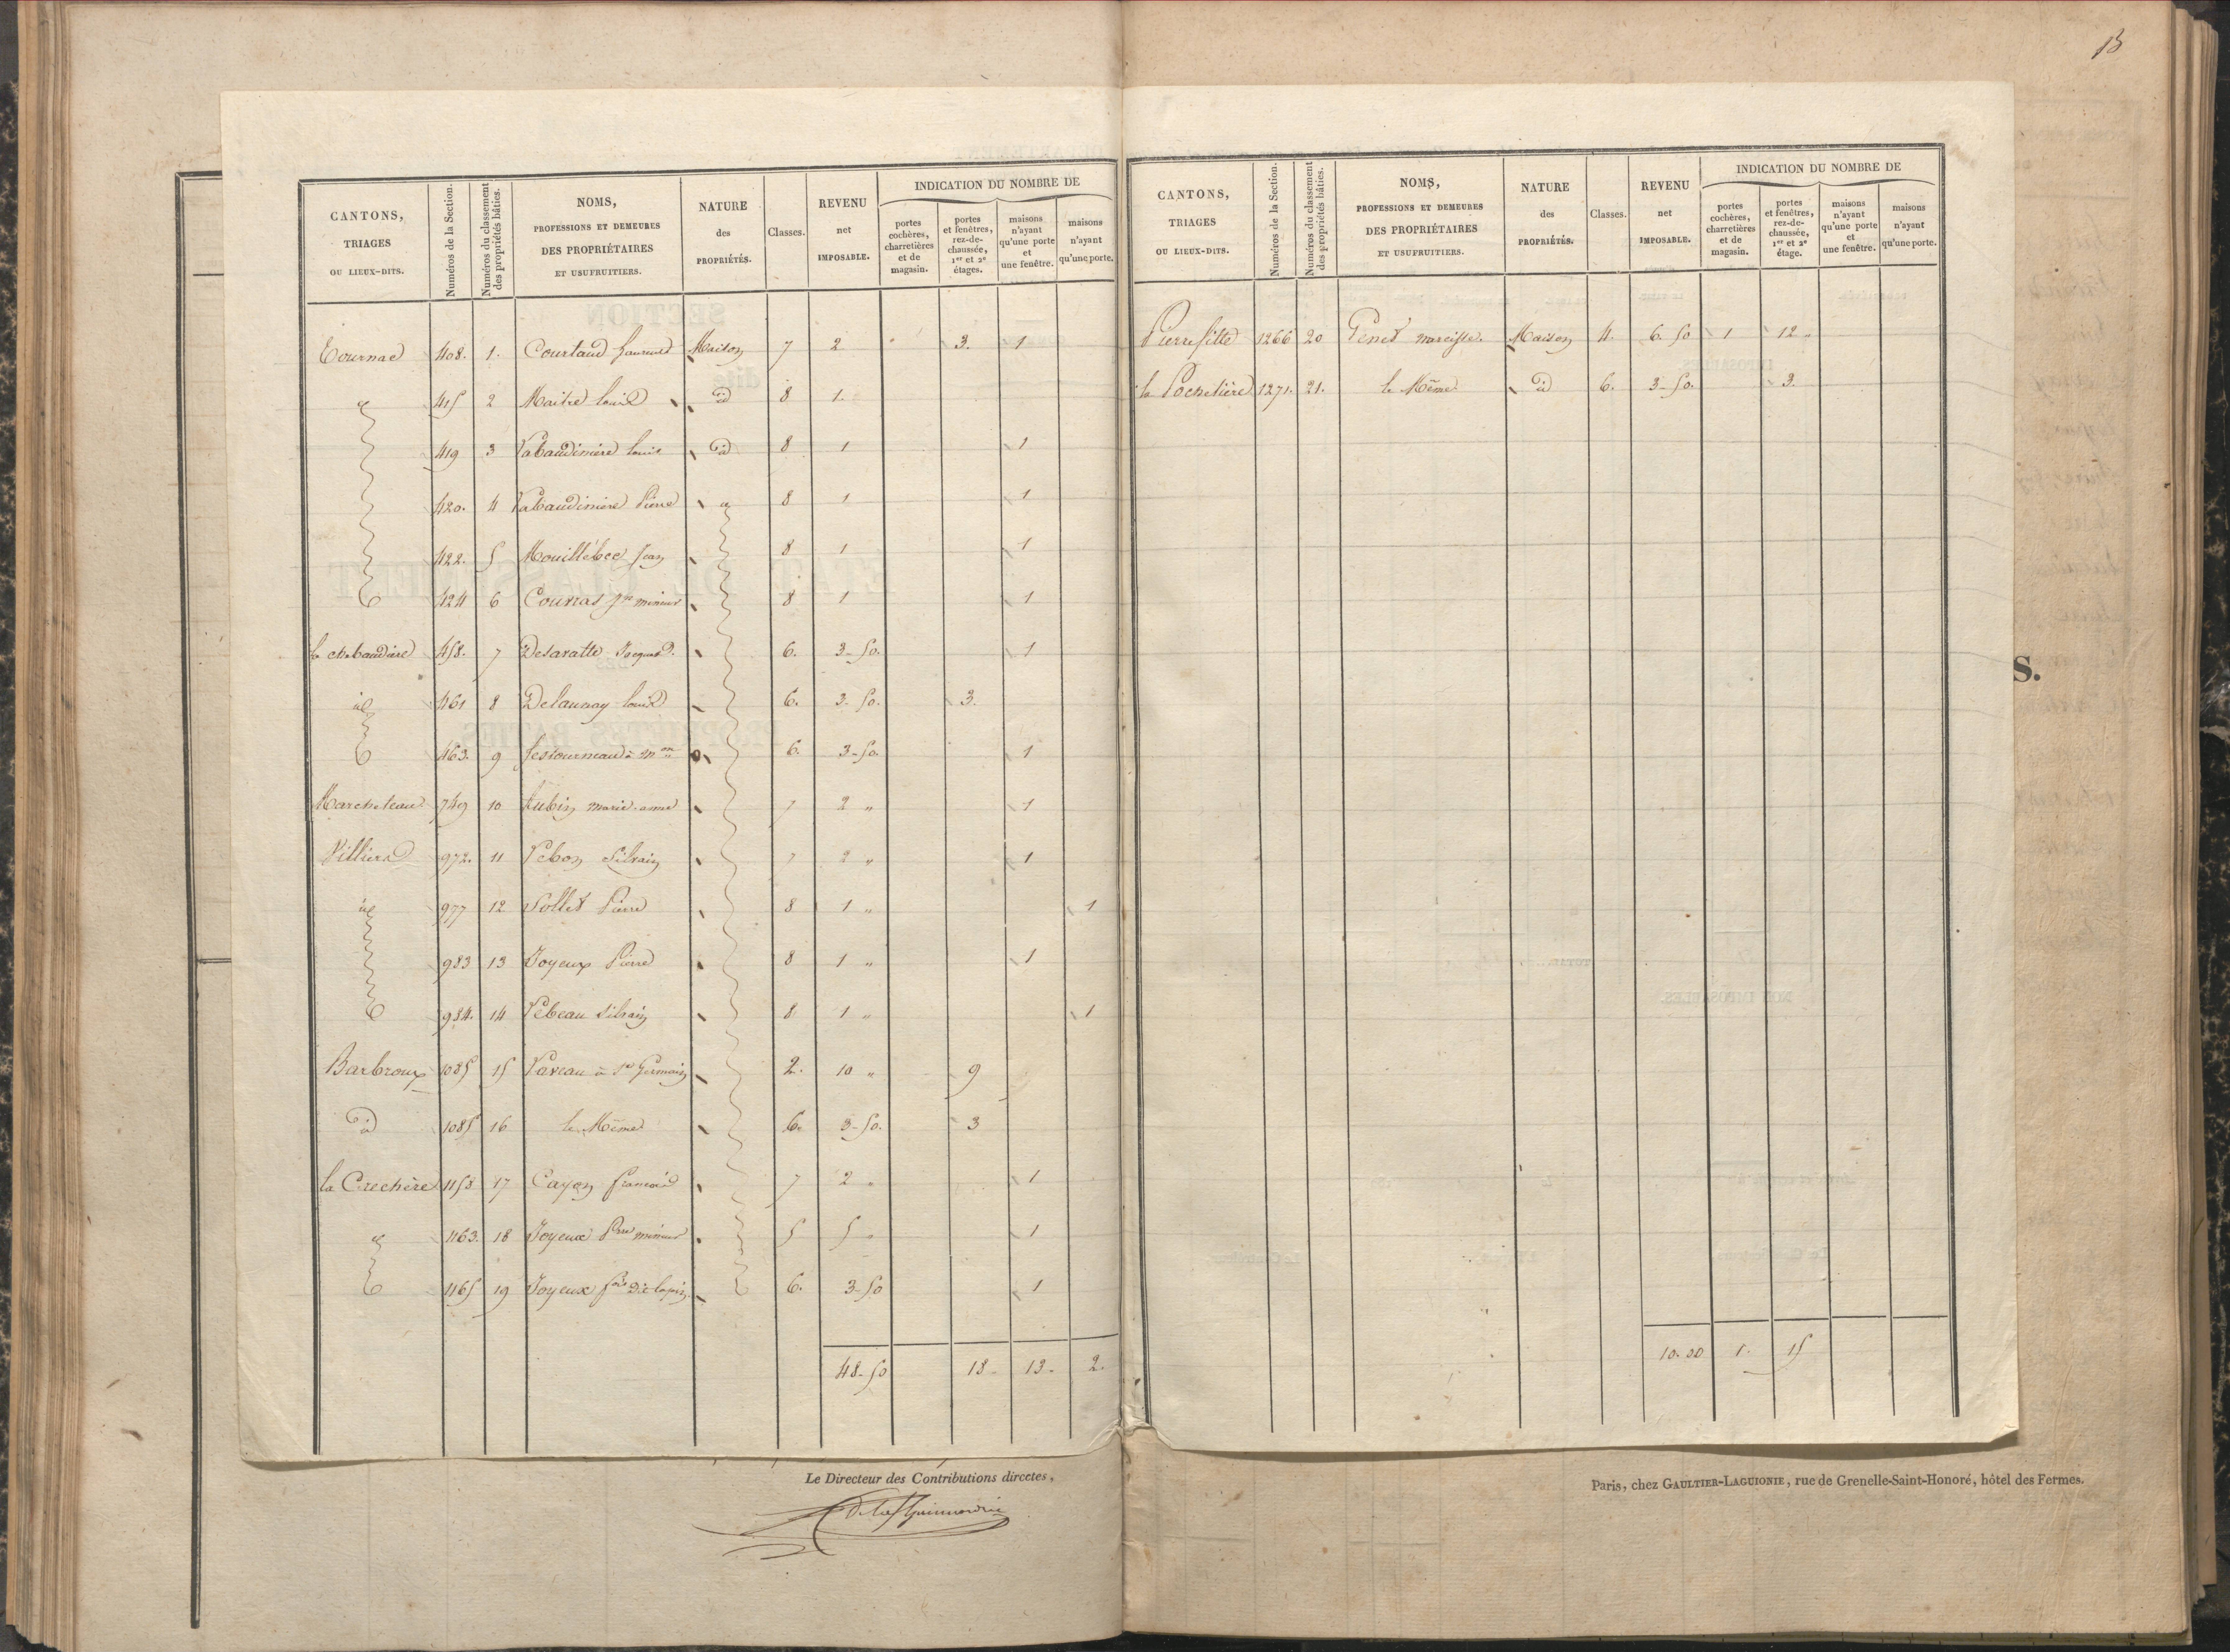 13
CANTONS, TRIAGES OU LIEUX-DITS. Numéros de la Section. Numéros du classement des propriétés bâties. NOMS, PROFESSIONS ET DEMEURES DES PROPRIÉTAIRES ET USUFRUITIERS. NATURE des PROPRIÉTÉS. Classes. REVENU net IMPOSABLE. INDICATION DU NOMBRE DE portes cochères, charretières et de magasin. portes et fenêtres, rez-de-chaussée, 1er et 2e étages. maisons n'ayant qu'une porte et une fenêtre. maisons n'ayant qu'une porte.
Tournac 408. 1. Courtaud Laurent Maison 7 2 3. 1
415 2 Maitre louis id 8 1.
419 3 Vabaudinière louis id 8 1 1
420. 4 Vabaudinière Pierre 8 1 1
422. 5 Mouillébec Jean 8 1 1
424 6 Couvras mineur 8 1 1
458. 7 Desaratte Jacques. 6. 3-50. 1
461 8 Delaunay louis 6. 3. 50. 3.
463. 9 6. 3-50. 1
Marcheteau 749 10 Aubin marie-anne 7 2 " 1
Villiers 972. 11 Pebon Silvain 7 2 " 1
977 12 Sollet Pierre 8 1 " 1
983 13 Joyeux Pierre 8 1 " 1
984. 14 Pebeau Silvain 8 1 " 1
Barbroux 1085 15 Pareau à St Germain 2. 10 " 9
id 1085 16 le Même 6. 3-50. 3
la Crechère 1158 17 Cayon francois 7 2 " 1
1163. 18 Joyeux Pre mineur 5 5 " 1
1165 19 Joyeux fois dit lapin 6. 3-50 1
48-50 18- 13- 2.
Le Directeur des Contributions directes,
CANTONS, TRIAGES OU LIEUX-DITS. Numéros de la Section. Numéros du classement des propriétés bâties. NOMS, PROFESSIONS ET DEMEURES DES PROPRIÉTAIRES ET USUFRUITIERS. NATURE des PROPRIÉTÉS. Classes. REVENU net IMPOSABLE. INDICATION DU NOMBRE DE portes cochères, charretières et de magasin. portes et fenêtres, rez-de-chaussée, 1er et 2e étage. maisons n'ayant qu'une porte et une fenêtre. maisons n'ayant qu'une porte.
Pierrefitte 1266 20 Penet narcisse. Maison 4. 6. 50 1 12 "
la Pochetière 1271. 21. le Même id 6. 3-50. 3.
10. 00 1. 15
S.
Paris, chez GAULTIER-LAGUIONIE, rue de Grenelle-Saint-Honoré, hôtel des Fermes.